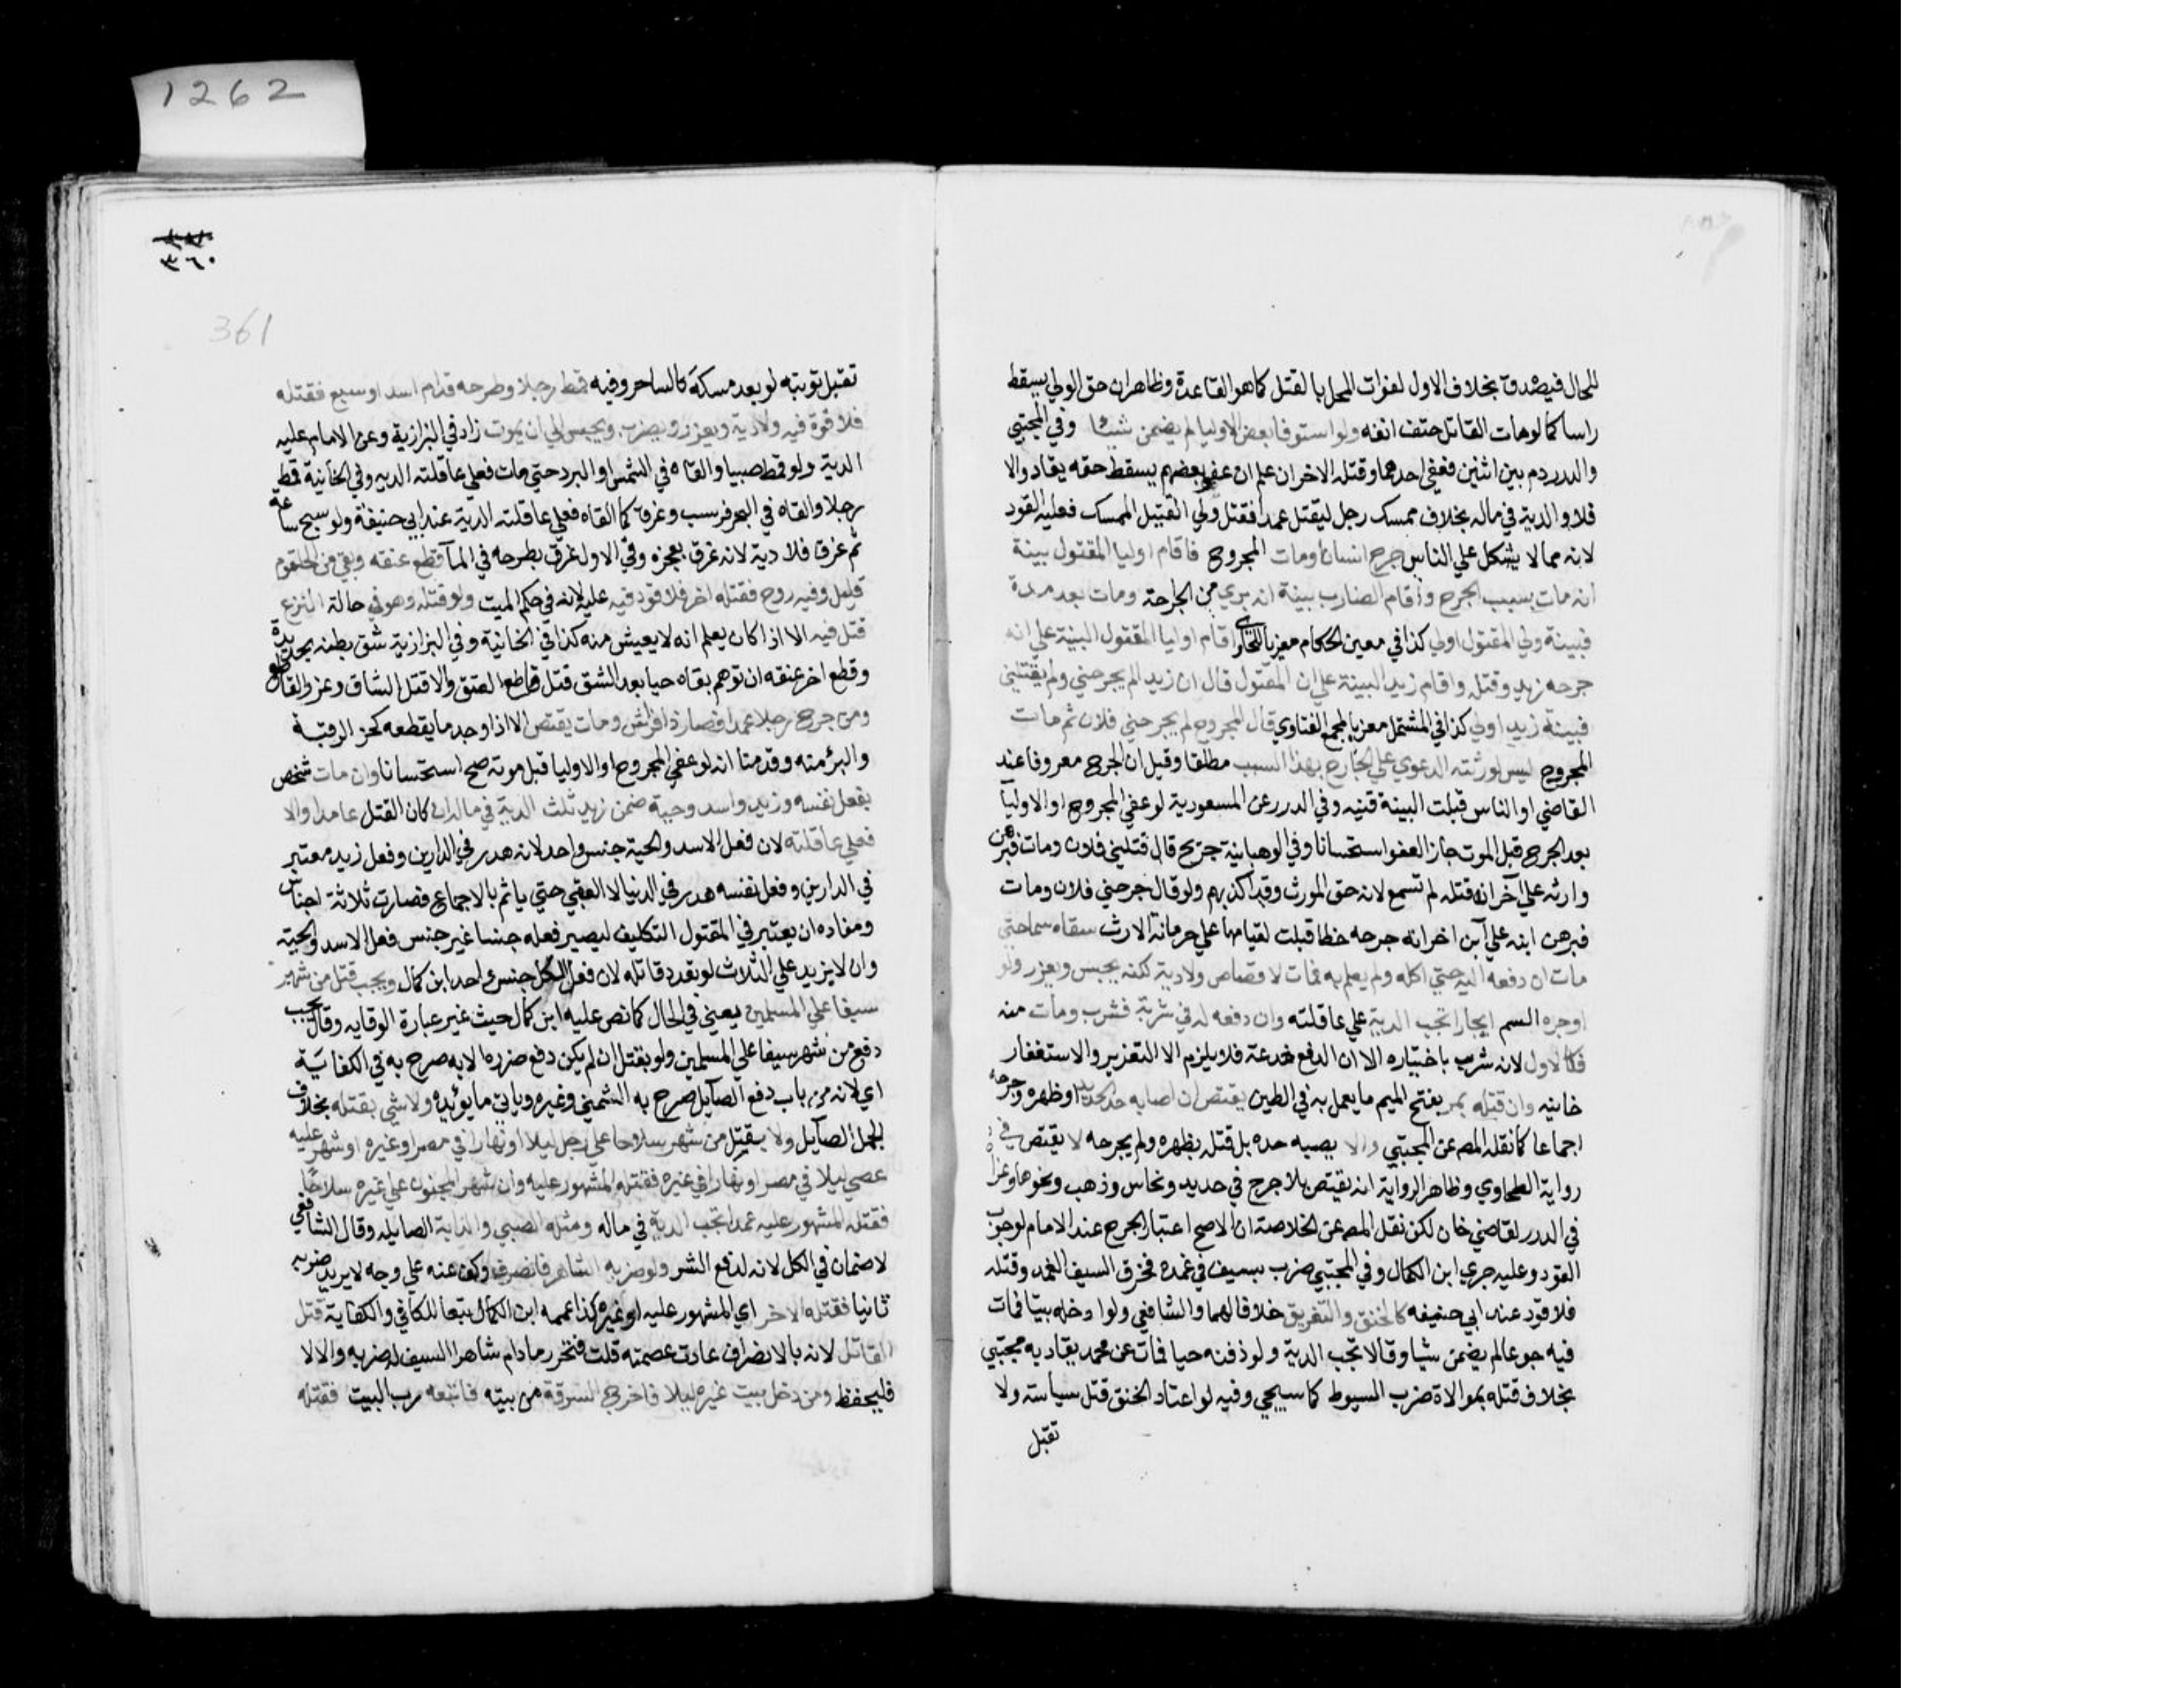 للحال فيصدق بخلاف الاول لفوات المحل بالقتل كما هو القاعدة وظاهر ان حق الولي يسقط
راسا كما لومات القاتل حتف انفه ولو استوفا بعض الاوليا لم يضمن شيئا وفي المجتبي
والدرر دم بين اثنين فعفى احدهما وقتله الاخر ان علم ان عفو بعضهم يسقط حقه يقاد والا
فلا والدية في ماله بخلاف ممسك رجل ليقتل عمدا فقتل ولي القتيل الممسك فعليه القود
لانه مما لا يشكل علي الناس جرح انسان ومات المجروح فاقام اوليا المقتول بينة
انه مات بسبب الجرح واقام الضارب بينة انه بري من الجراحة ومات بعد مدة
فبينة ولي المقتول اولي كذا في معين الحكام معزيا للحاوي اقام اوليا المقتول البينة علي انه
جرحه زيد وقتله واقام زيد البينة علي ان المقتول قال ان زيد الم يجرحني ولم يقتلني
فبينة زيد اولي كذا في المشتمل معزيا لمجمع الفتاوي قال المجروح لم يجرحني فلان ثم مات
المجروح ليس لورثته الدعوي علي الجارح بهذا السبب مطلقا وقيل ان الجرح معروفا عند
القاضي او الناس قبلت البينة قنيه وفي الدرر عن المسعودية لو عفي المجروح او الاوليآ
بعد الجرح قبل الموت جاز العفو استحسانا وفي الوهبانية جريح قال قتلني فلان ومات فبرهن
وارثه علي آخر انه قتله لم تسمع لانه حق المورث وقد اكذبهم ولو قال جرحني فلان ومات
فبرهن ابنه علي ابن اخر انه جرحه خطا قبلت لقيامها علي حرمانه الارث سقاه سما حتي
مات ان دفعه اليه حتي اكله ولم يعلم به فمات لا قصاص ولا دية لكنه يحبس ويعزر ولو
اوجره السم ايجارا تجب الدية علي عاقلته وان دفعه له في شربة فشرب ومات منه
فكالاول لانه شرب باختياره الا ان الدفع خدعة فلا يلزم الا التعزير والاستغفار
خانيه وان قتله بمر بفتح الميم ما يعمل به في الطين يقتص ان اصابه حد الحديد او ظهره وجرحه
اجماعا كما نقله المص عن المجتبي والا يصبه حده بل قتله بظهره ولم يجرحه لا يقتص في
رواية الطحاوي وظاهر الرواية انه يقتص بلا جرح في حديد ونحاس وذهب ونحوها وعزاه
في الدرر لقاضي خان لكن نقل المص عن الخلاصة ان الاصح اعتبار الجرح عند الامام لوجوب
القود وعليه جري ابن الكمال وفي المجتبي ضرب بسيف في غمده فخرق السيف الغمد وقتله
فلا قود عند ابي حنيفه كالخنق والتغريق خلافا لهما والشافعي ولو ادخله بيتا فمات
فيه جوعا لم يضمن شيا وقالا تجب الدية ولو دفنه حيا فمات عن محمد يقاد به مجتبي
بخلاف قتله بموالاة ضرب السوط كما سيجي وفيه لو اعتاد الخنق قتل سياسته ولا
تقبل
1262
٣٦٠
361
تقبل توبته لو بعد مسكه كالساحر وفيه قمط رجلا وطرحه قدام اسد او سبع فقتله
فلا قود فيه ولا دية ويعزر ويضرب ويحبس الي ان يموت زاد في البزازية وعن الامام عليه
الدية ولو قمط صبيا والقاه في الشمس او البرد حتي مات فعلي عاقلته الديه وفي الخانية قمط
رجلا والقاه في البحر فرسب وغرق كما القاه فعلي عاقلته الدية عند ابي حنيفة ولو سبح ساعة
ثم غرقا فلا دية لانه غرق بعجزه وفي الاول غرق بطرحه في المآ قطع عنقه وبقي من الحلقوم
قليل وفيه روح فقتله اخر فلا قود فيه عليه لانه في حكم الميت ولو قتله وهو في حالة النزع
قتل فيه الا اذا كان يعلم انه لا يعيش منه كذا في الخانية وفي البزازية شق بطنه بحديدة
وقطع اخر عنقه ان توهم بقاه حيا بعد الشق قتل قاطع العنق والا قتل الشاق وعزر القاطع
ومن جرح رجلا عمدا فصار ذا فراش ومات يقتص الا اذا وجد ما يقطعه كحز الرقبة
والبرؤ منه وقدمنا انه لو عفي المجروح او الاوليا قبل موته صح استحسانا وان مات شخص
بفعل نفسه وزيد واسد وحية ضمن زيد ثلث الدية في ماله ان كان القتل عامدا والا
فعلي عاقلته لان فعل الاسد والحية جنس واحد لانه هدر في الدارين وفعل زيد معتبر
في الدارين وفعل نفسه هدر في الدنيا لا العقبي حتي ياثم بالاجماع فصارت ثلاثة اجناس
ومفاده ان يعتبر في المقتول التكليف ليصير فعله جنسا غير جنس فعل الاسد والحية
وان لا يزيد علي الثلاث لو تعدد قاتله لان فعل الكل جنس واحد ابن كمال ويجب قتل من شهر
سيفا علي المسلمين يعني في الحال كما نص عليه ابن كمال حيث غير عبارة الوقايه وقال يجب
دفع من شهر سيفا علي المسلمين ولو بقتل ان لم يكن دفع ضرره الا به صرح به في الكفاية
اي لانه من باب دفع الصآيل صرح به الشمني وغيره وياتي ما يؤيده ولا شي بقتله بخلاف
الجمل الصآيل ولا يقتل من شهر سلاحا علي رجل ليلا او نهارا في مصر او غيره او شهر عليه
عصي ليلا في مصر او نهارا في غيره فقتله المشهور عليه وان شهر المجنون علي غيره سلاحا
فقتله المشهور عليه عمدا تجب الدية في ماله ومثله الصبي والدابة الصايله وقال الشافعي
لا ضمان في الكل لانه لدفع الشر ولو ضربه الشاهر فانصرف وكف عنه علي وجه لا يريد ضربه
ثانيا فقتله الاخر اي المشهور عليه او غيره كذا عممه ابن الكمال تبعا للكافي والكفاية قتل
القاتل لانه بالانصراف عادت عصمته قلت فتحرر مادام شاهرا السيف له ضربه والا لا
فليحفظ ومن دخل بيت غيره ليلا فاخرج السرقة من بيته فاتبعه رب البيت فقتله